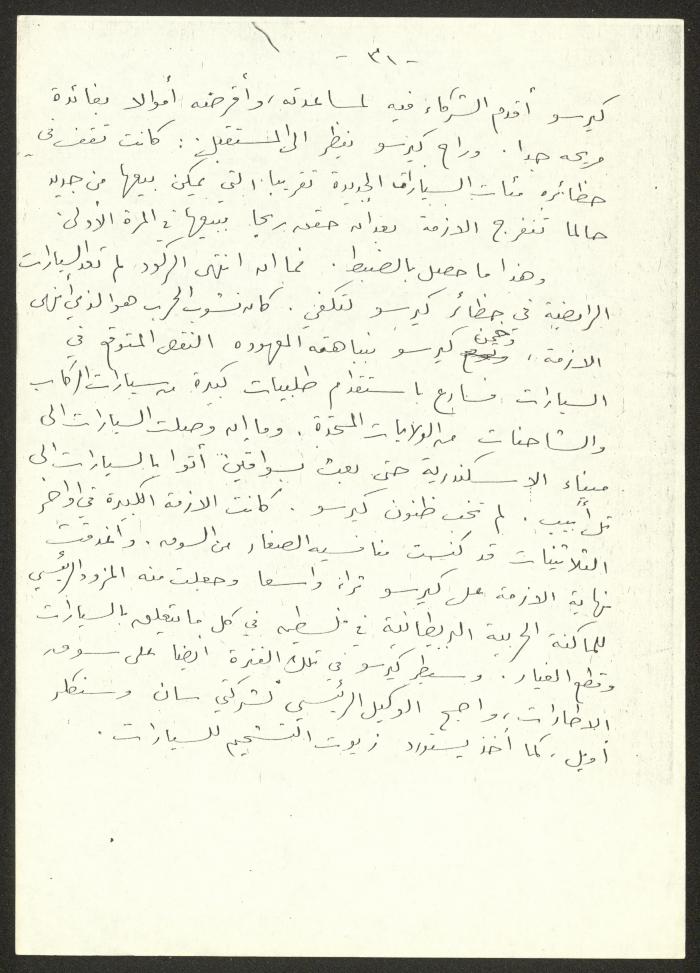 - ٣١ -
كيرسو أقدم الشركاء فيه لمساعدته، وأقرضته أموالا بفائدة
مريحه جدا. وراح كيرسو ينظر الى المستقبل: كانت تقف في
حظائره مئات السيارات الجديدة تقريبا، التي يمكن بيعها من جديد
حالما تنفرج الازمة بعد ان حققت ربحا ببيعها في المرة الأولى.
وهذا ما حصل بالضبط. فما ان انتهى الركود لم تعد السيارات
الرابضة في حظائر كيرسو لتكفي. كان نشوب الحرب هو الذي أنهى
الازمة، وخمن كيرسو بنباهته المعهوده النقص المتوقع في
السيارات فسارع باستقدام طلبيات كبيرة من سيارات الركاب
والشاحنات من الولايات المتحدة. وما ان وصلت السيارات الى
ميناء الاسكندرية حتى بعث بسواقين أتوا بالسيارات الى
تل أبيب. لم تخب ظنون كيرسو. كانت الازمة الكبيرة في اواخر
الثلاثينات قد كنست منافسيه الصغار من السوق. واغدقت
نهاية الازمة على كيرسو ثراء واسعا وجعلت منه المزود الرئيسي
للماكنة الحربية البريطانية في فلسطين في كل ما يتعلق بالسيارات
وقطع الغيار. وسيطر كيرسو في تلك الفترة ايضا على سوق
الاطارات، واصبح الوكيل الرئيسي لشركتي سان وسنكلر
أويل، كما أخذ يستورد زيوت التشحيم للسيارات.